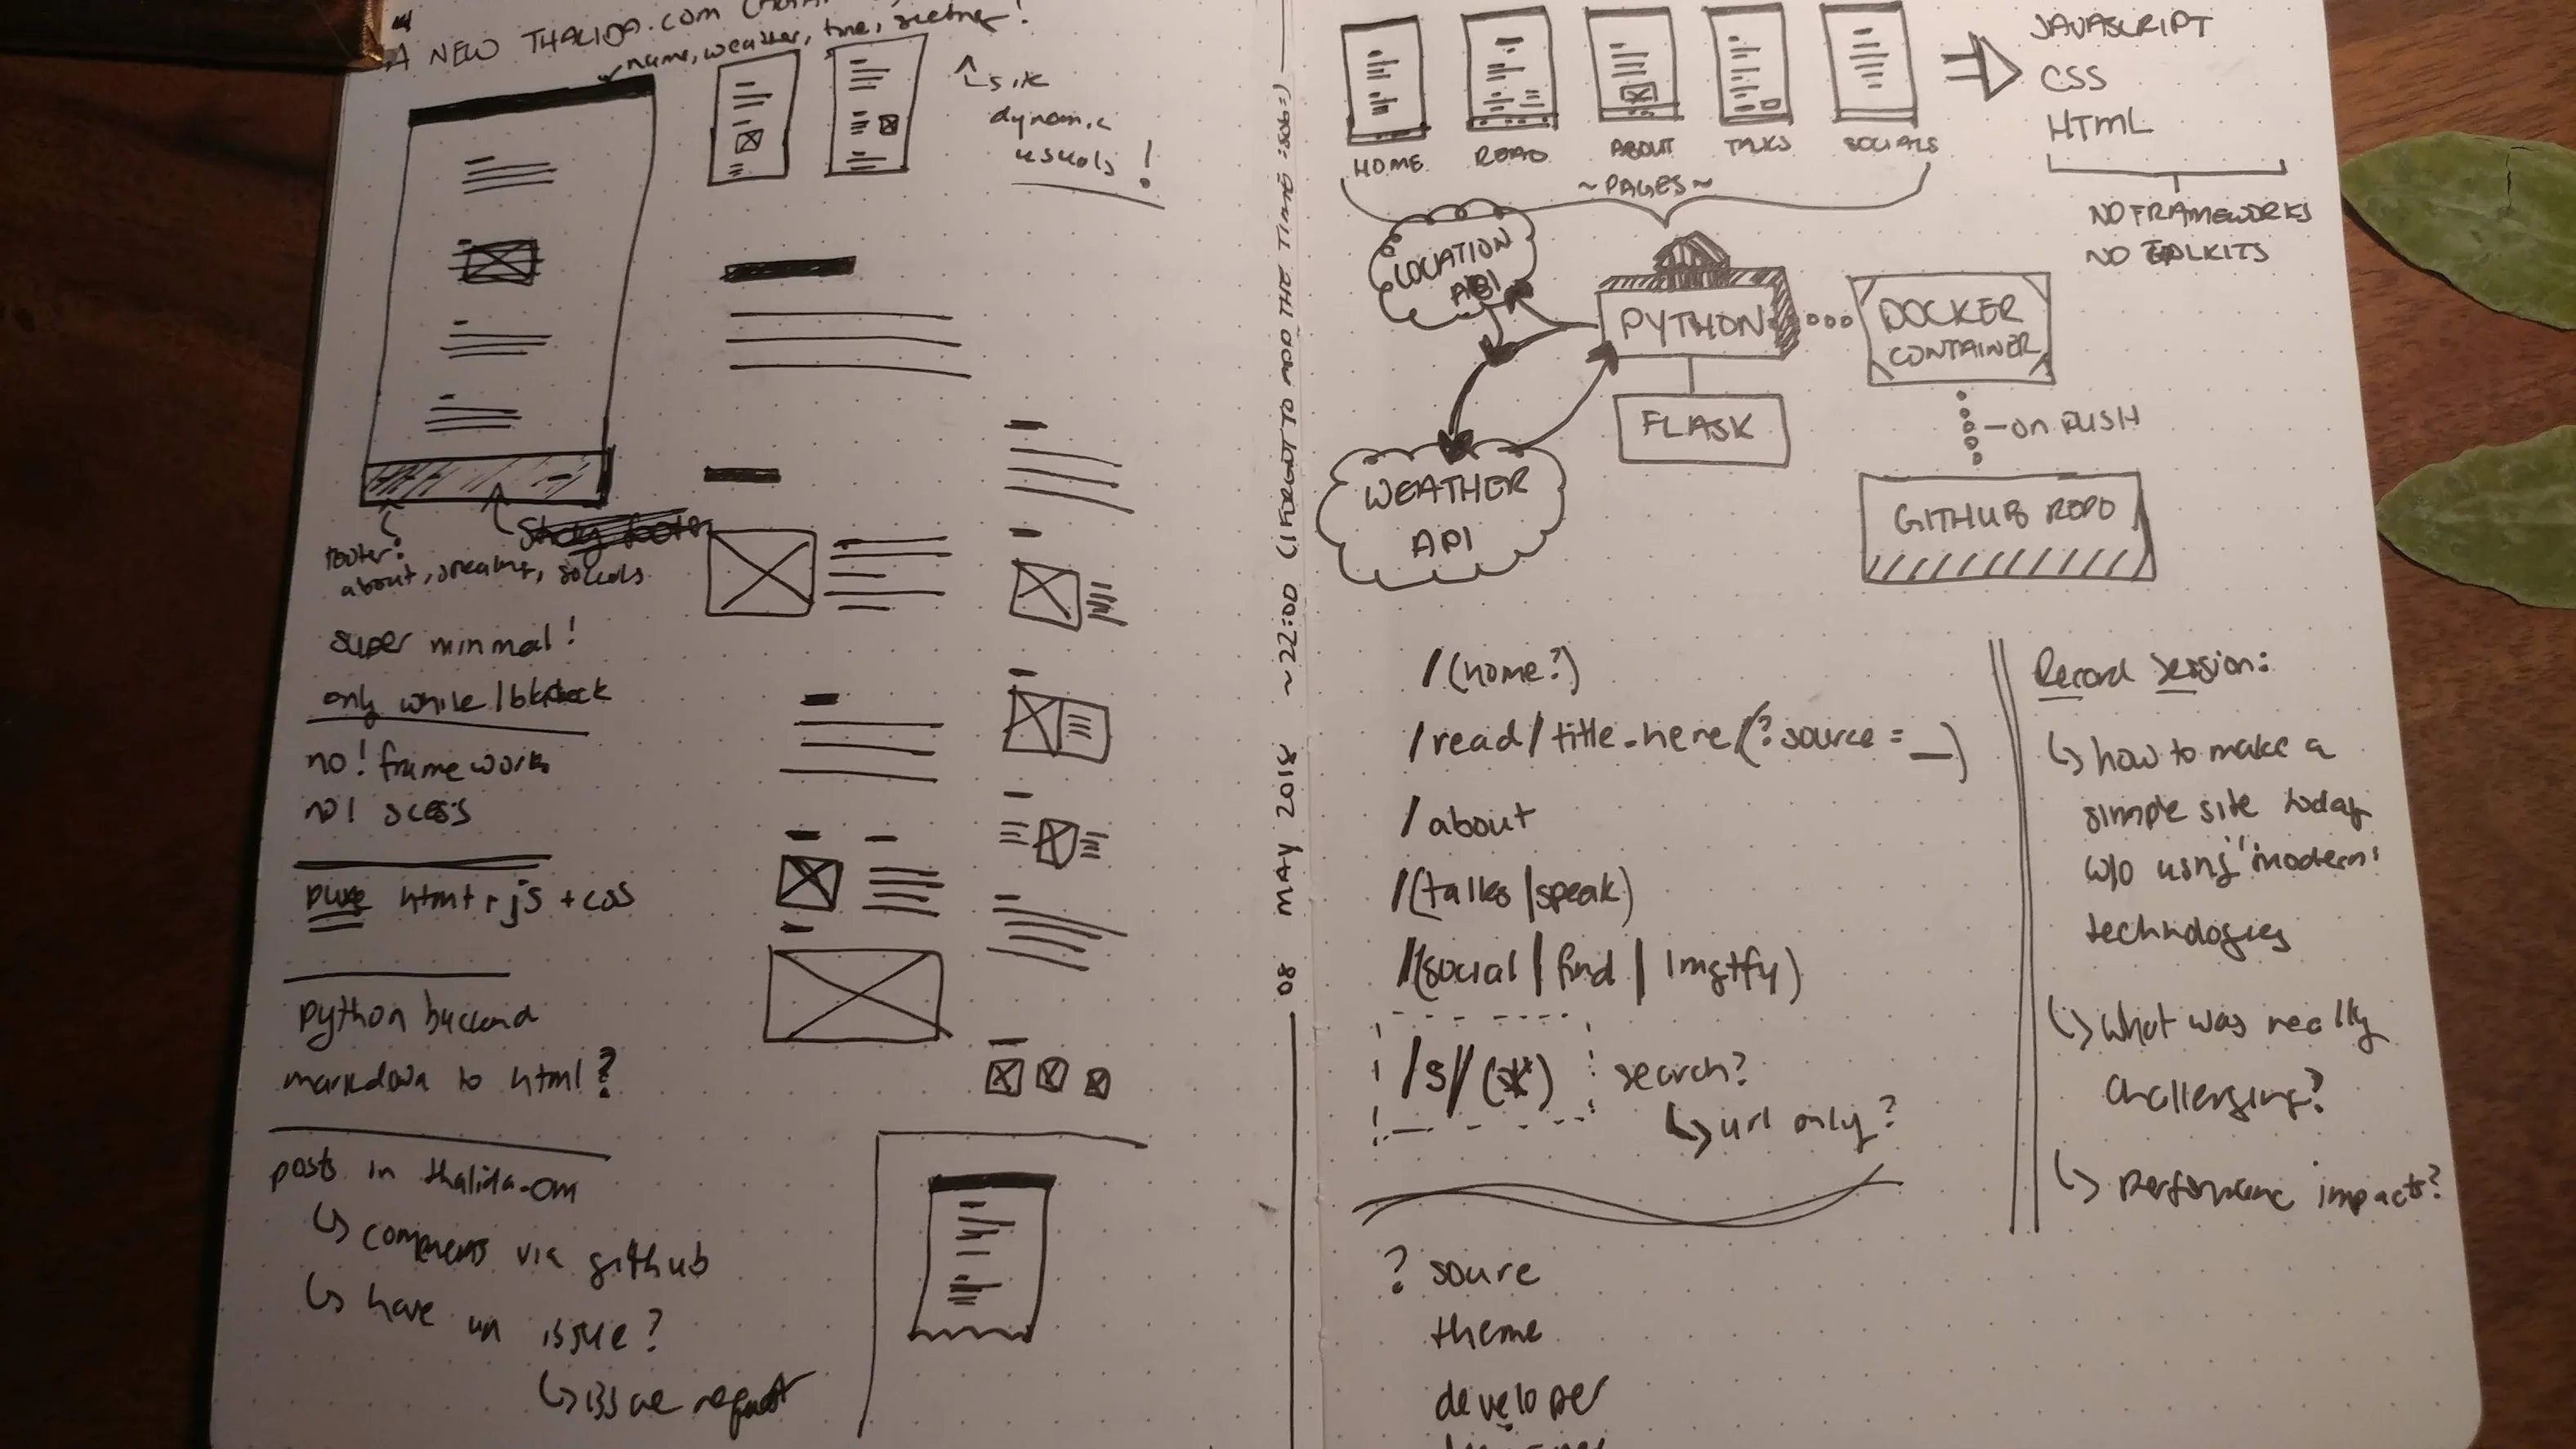 A NEW THALIDA.COM
name, weather, time,
site
dynamic
visuals!
footer:
about, speaking, socials
super minimal!
only white/
no! frameworks
no!
pure html + js + css
python backend
markdown to html?
posts in
comments via github
have an issue?
issue request
08 MAY 2018 ~22:00 (I FORGOT TO ADD THE TIME :sob:)
HOME
READ
ABOUT
TALKS
SOCIALS
~PAGES~
JAVASCRIPT
CSS
HTML
NO FRAMEWORKS
NO TOOLKITS
LOCATION
API
PYTHON
DOCKER
CONTAINER
FLASK
ON PUSH
WEATHER
API
GITHUB REPO
/(home?)
/read/title-here(?source=__)
/about
/(talks|speak)
/(social|find|lmgtfy)
/s/(*)
search?
url only?
? source
theme
developer
Record Session:
how to make a
simple site today
w/o using "modern"
technologies
what was really
challenging?
performance impacts?